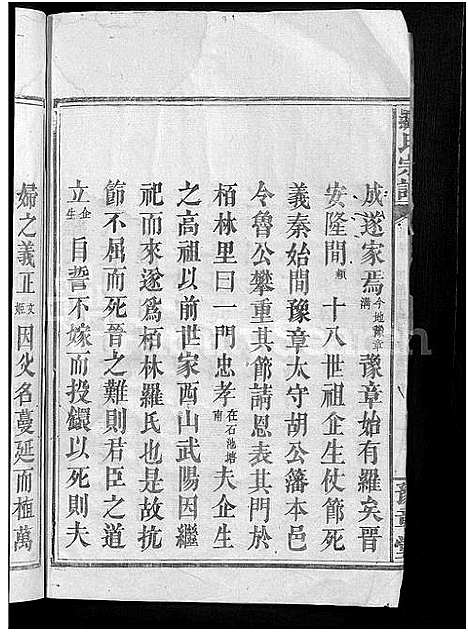 羅氏宗譜
成遂家焉今地豫章溝豫章始有羅矣晋
安隆間十八世祖企生仗節死
義秦始間豫章太守胡公藩本邑
令魯公攀重其節請恩表其門於
栢林里曰一門忠孝在石池塘南夫企生
之高祖以前世家酉山武陽因繼
祀而來遂爲栢林羅氏也是故抗
節不屈而死晉之難則君臣之道
立企生自誓不嫁而投繯以死則夫
婦之義正文姬因火名蔓延而植萬
豫章堂